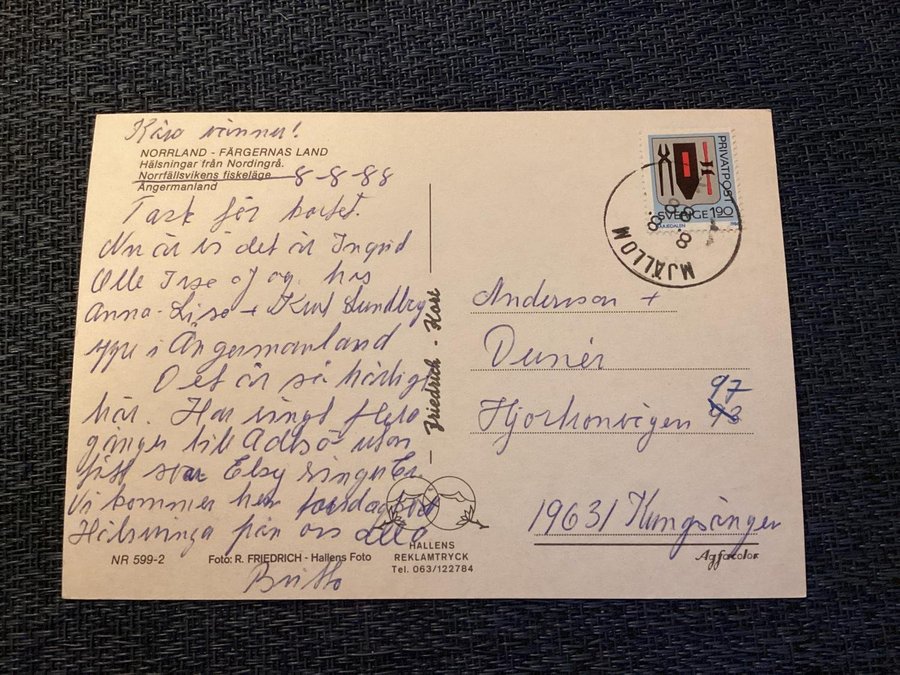 Kära vänner!
NORRLAND - FÄRGERNAS LAND
Hälsningar från Nordingrå.
Norrfällsvikens fiskeläge.
Ångermanland
8-8-88
Tack för kortet.
Nu är vi det är Ingrid
Olle och jag hos
Anna-Lisa + Kurt Lundberg
uppe i Ångermanland
Det är så härligt
här. Har ringt flera
gånger till Adelsö utan
få svar Elsy ringer Er
Vi kommer hem
Hälsninga från oss alla
Britta
NR 599-2
Foto: R. FRIEDRICH - Hallens Foto
Friedrich - Kort
HALLENS
REKLAMTRYCK
Tel. 063/122784
PRIVATPOST
SVERIGE 190
HÄRJEDALEN
MJÄLLOM
8.8.88
Andersson +
Dunér
Hjortronvägen 97
93
19631 Kungsängen
Agfacolor